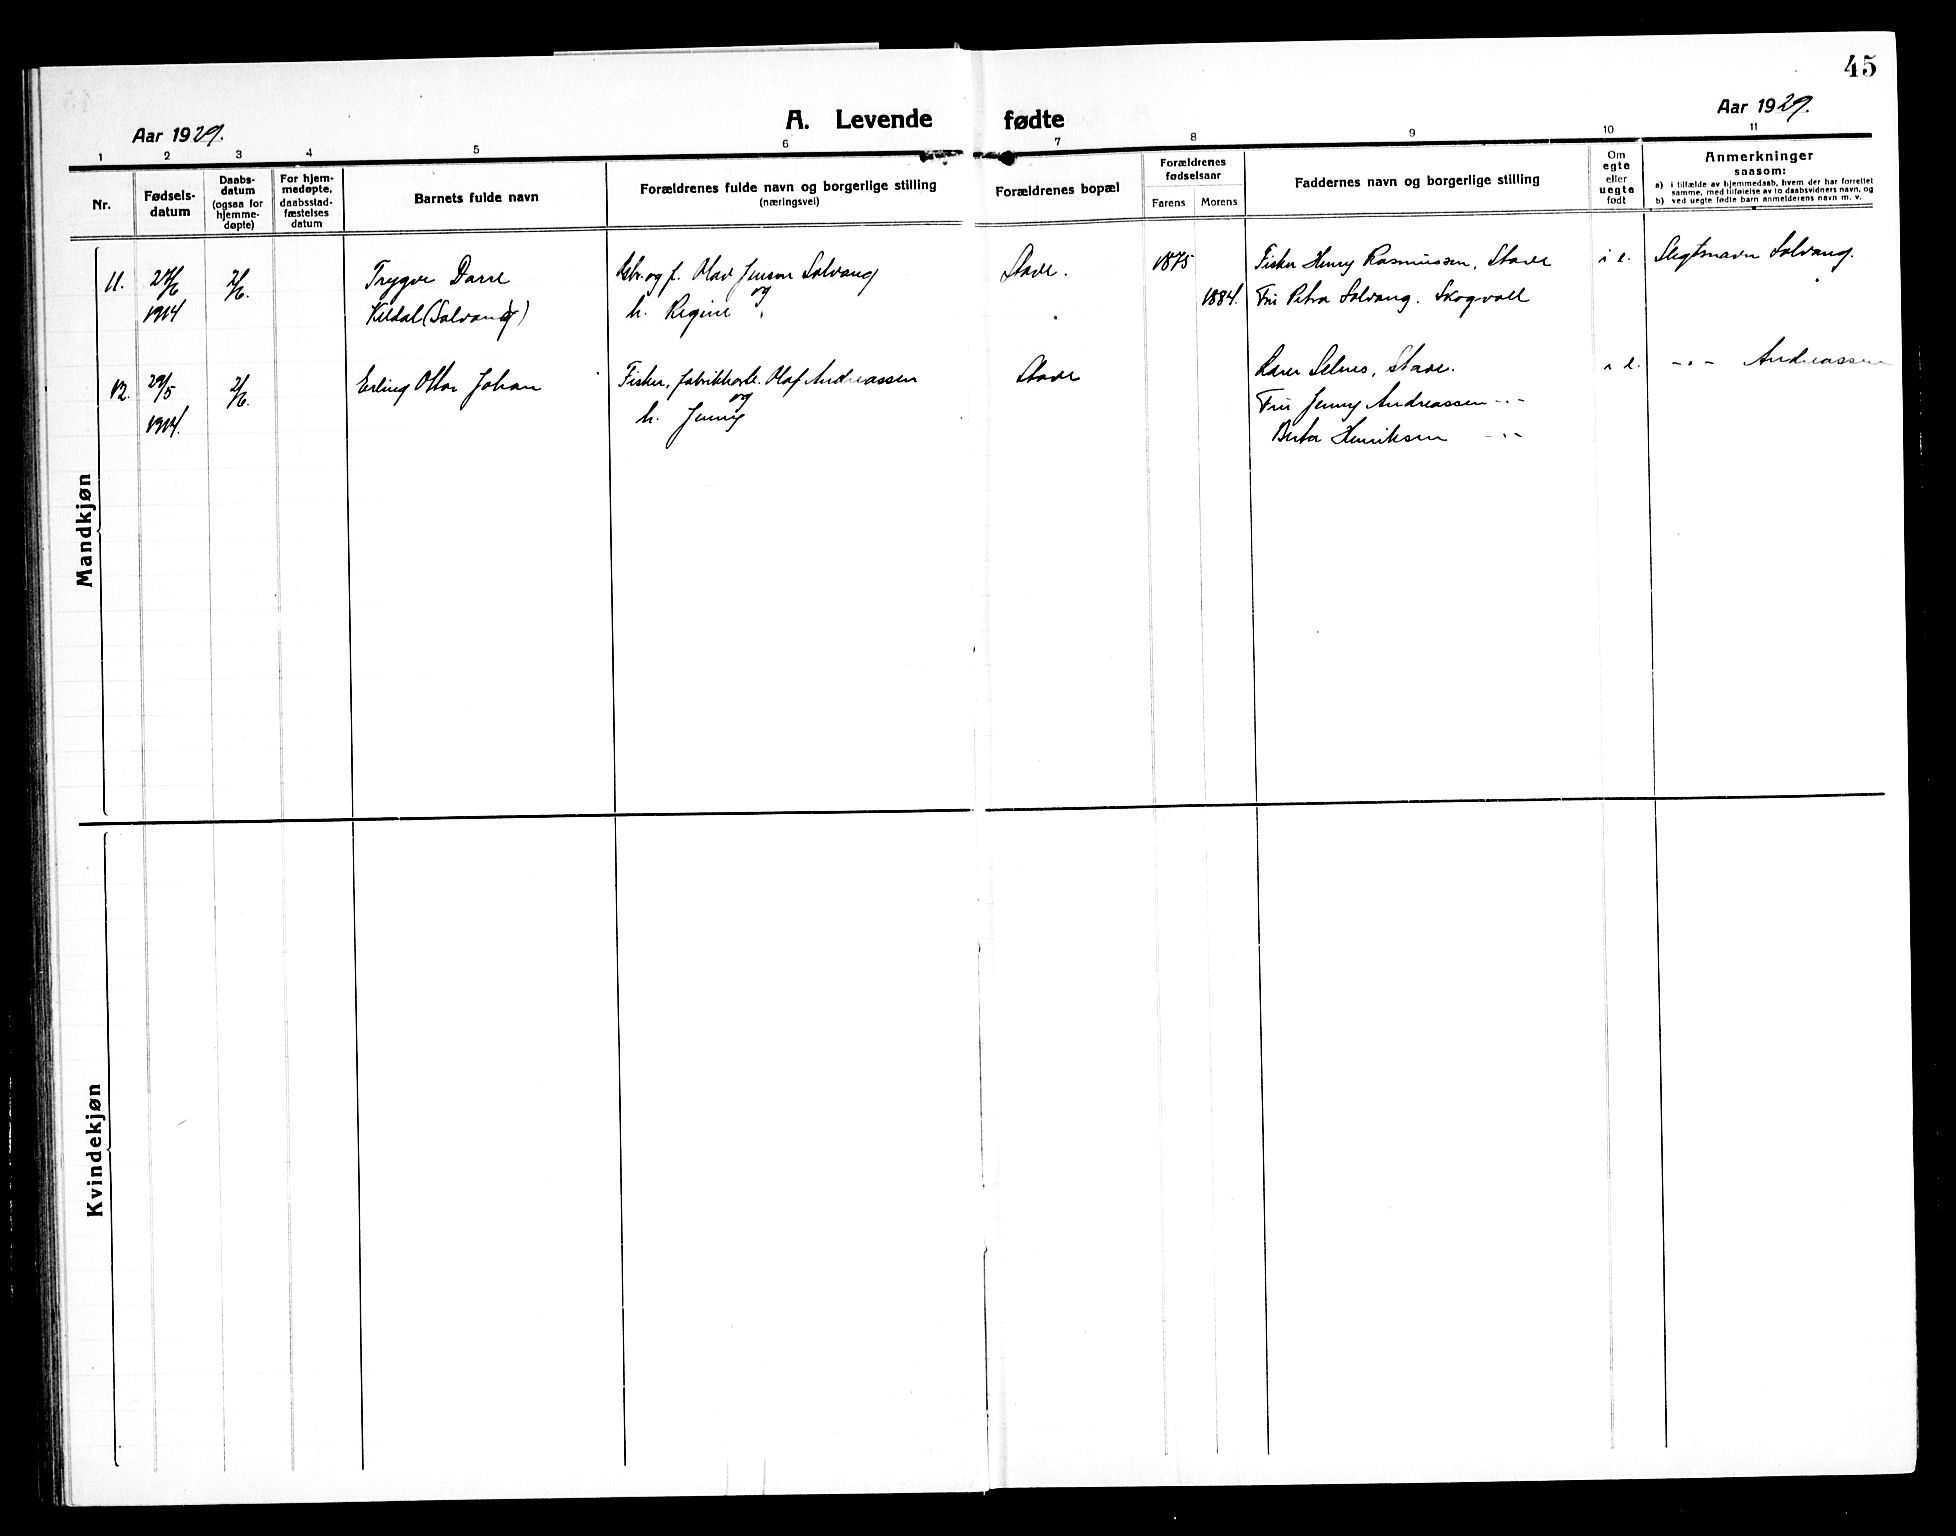 45
Aar 1929.
A. Levende fødte
Aar 1929.
1 2 3 4 5 6 7 8 9 10 11
Nr.
Fødsels-
datum
Daabs-
datum
(ogsaa for
hjemme-
døpte)
For hjem-
medøpte,
daabsstad-
fæstelses
datum
Barnets fulde navn
Forældrenes fulde navn og borgerlige stilling
(næringsvei)
Forældrenes bopæl
Forældrenes
fødselsaar
Farens Morens
Faddernes navn og borgerlige stilling
Om
egte
eller
uegte
født
Anmerkninger
saasom:
a) i tilfælde av hjemmedaab, hvem der har forrettet
samme, med tilføielse av to daabsvidners navn, og
b) ved uegte fødte barn anmelderens navn m. v.
Mandkjøn
11. 2/6. Trygve Darre Gbr. og f. Olav Jenson Solvang Stave. 1875 Fisker Henry Rasmussen, Stave i e. Slegtsnavn Solvang.
og
1914 Kildal (Solvang) h. Regine 1884. Fru Petra Solvang. Skogvoll
12. 29/5 2/6. Erling Ottar Johan Fisker, fabrikkarb. Olaf Andreassen Stave Selnes, Stave. i e. -"- Andreassen
og
1914. h. Jenny Fru Jenny Andreassen -"-
Berta Henriksen -"-
Kvindekjøn